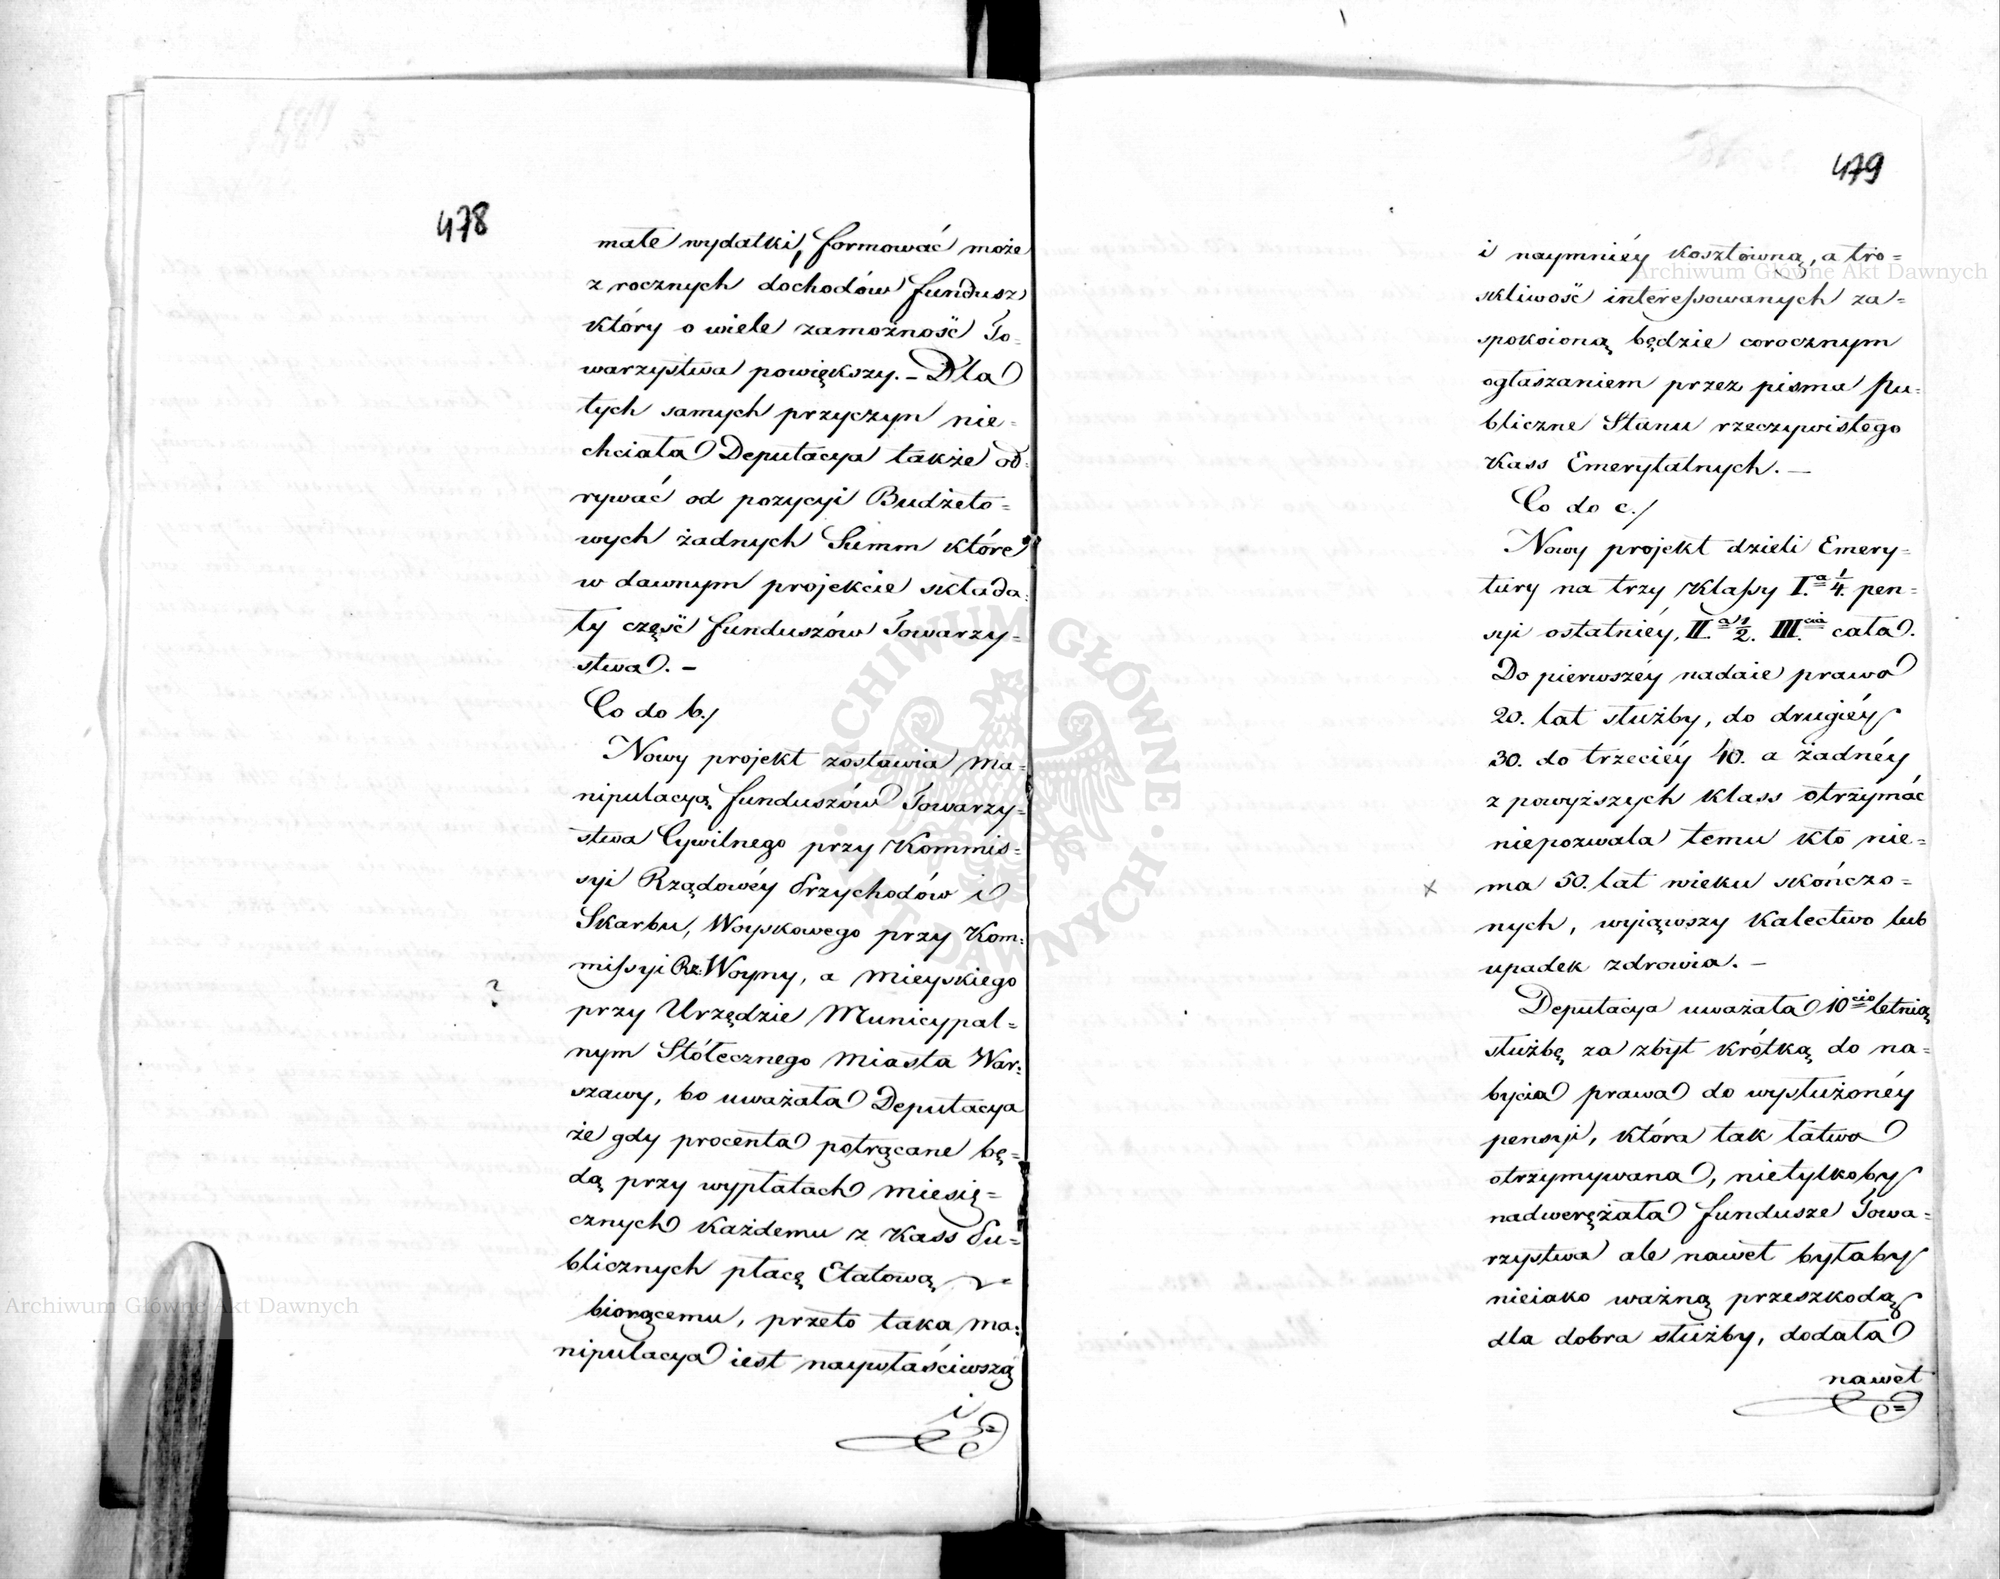 478
małe wydatki, formować może
z rocznych dochodów fundusz
który o wiele zamożność To-
warzystwa powiększy. – Dla
tych samych przyczyn nie-
chciała Deputacya także od-
rywać od pozycyi Budżeto=
wych żadnych Summ które
w dawnym projekcie składa-
ły część funduszów Towarzy=
stwa. –
Co do b./
Nowy projekt zostawia ma=
nipulacyą funduszów Towarzy=
stwa Cywilnego przy Kommis=
syi Rządowéy Przychodów i
Skarbu, Woyskowego przy Kom=
missyi Rz: Woyny, a Mieyskiego
?
przy Urzędzie Municypal=
nym Stółecznego Miasta War=
szawy, bo uważała Deputacya
że gdy procenta potrącane bę=
dą przy wypłatach miesię=
cznych każdemu z Kass Pu=
blicznych płacę Etatową
biorącemu, przeto taka ma=
nipulacya iest naywłaściwszą
i
479
i naymniéy kosztowną, a tro=
skliwość interessowanych za=
spokoioną będzie corocznym
ogłaszaniem przez pisma Pu=
bliczne Stanu rzeczywistego
Kass Emerytalnych. –
Co do c./
Nowy projekt dzieli Emery=
tury na trzy Klassy I.a 1/4. pen=
syi ostatniéy, II.a 1/2. III.cia cała.
Do pierwszéy nadaie prawo
20. lat służby, do drugiéy
30. do trzeciéy 40. a żadnéy
z powyższych klass otrzymać
niepozwala temu kto nie=
x
ma 50. lat wieku skończo=
nych, wyiąwszy Kalectwo lub
upadek zdrowia. –
Deputacya uważała 10cio letnią
służbę za zbyt krótką do na=
bycia prawa do wysłużonéy
pensyi, która tak łatwo
otrzymywana, nietylkoby
nadwerężała fundusze Towa=
rzystwa ale nawet byłaby
nieiako ważną przeszkodą
dla dobra służby, dodała
nawet
Archiwum Główne Akt Dawnych
Archiwum Główne Akt Dawnych
ARCHIWUM GŁÓWNE AKT DAWNYCH